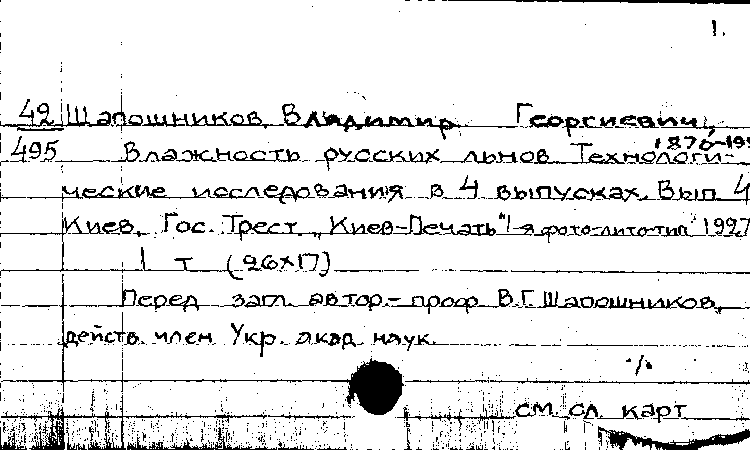 1.
42 Шапошников, Владимир Георгиевич,
1870-19
495 Влажность русских льнов. Технологи-
ческие исследования в 4 выпусках. Вып. 4
Киев, Гос. Трест „Киев-Печать" 1-я фото-лито-тип. 1927
1 т. (26×17)
Перед загл. автор - проф. В.Г. Шапошников,
действ. член Укр. акад. наук.
·/·
см. сл. карт